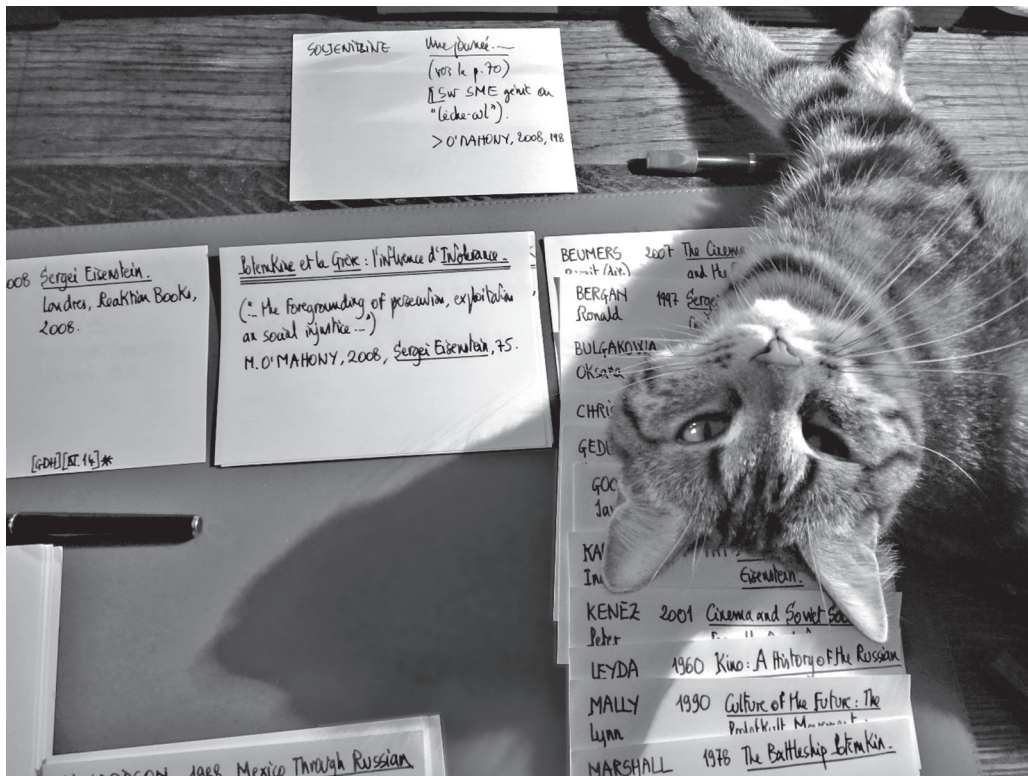 SOLJENITSINE Une journée...
(voir le p. 70)
SME génie ou
"lèche-cul").
> O'MAHONY, 2008, 198
008 Sergei Eisenstein.
Londres, Reaktion Books,
2008.
[GDH][XI.14]*
Potemkine et la Grève : l'influence d'Intolerance.
(": the foregrounding of persecution, exploitation
an social injustice...")
M. O'MAHONY, 2008, Sergei Eisenstein, 75.
BEUMERS 2007 The Cinema
and the
BERGAN 1997 Sergei
Ronald
BULGAKOWA
Oksana
CHRIS
GEDU
GOO
Jay
KA
Eisenstein.
KENEZ 2001 Cinema and Soviet Soc
Peter
LEYDA 1960 Kino : A History of the Russian
MALLY 1990 Culture of the Future : The
Lynn Proletkult Movement
MARSHALL 1978 The Battleship Potemkin.
1988 Mexico Through Russian